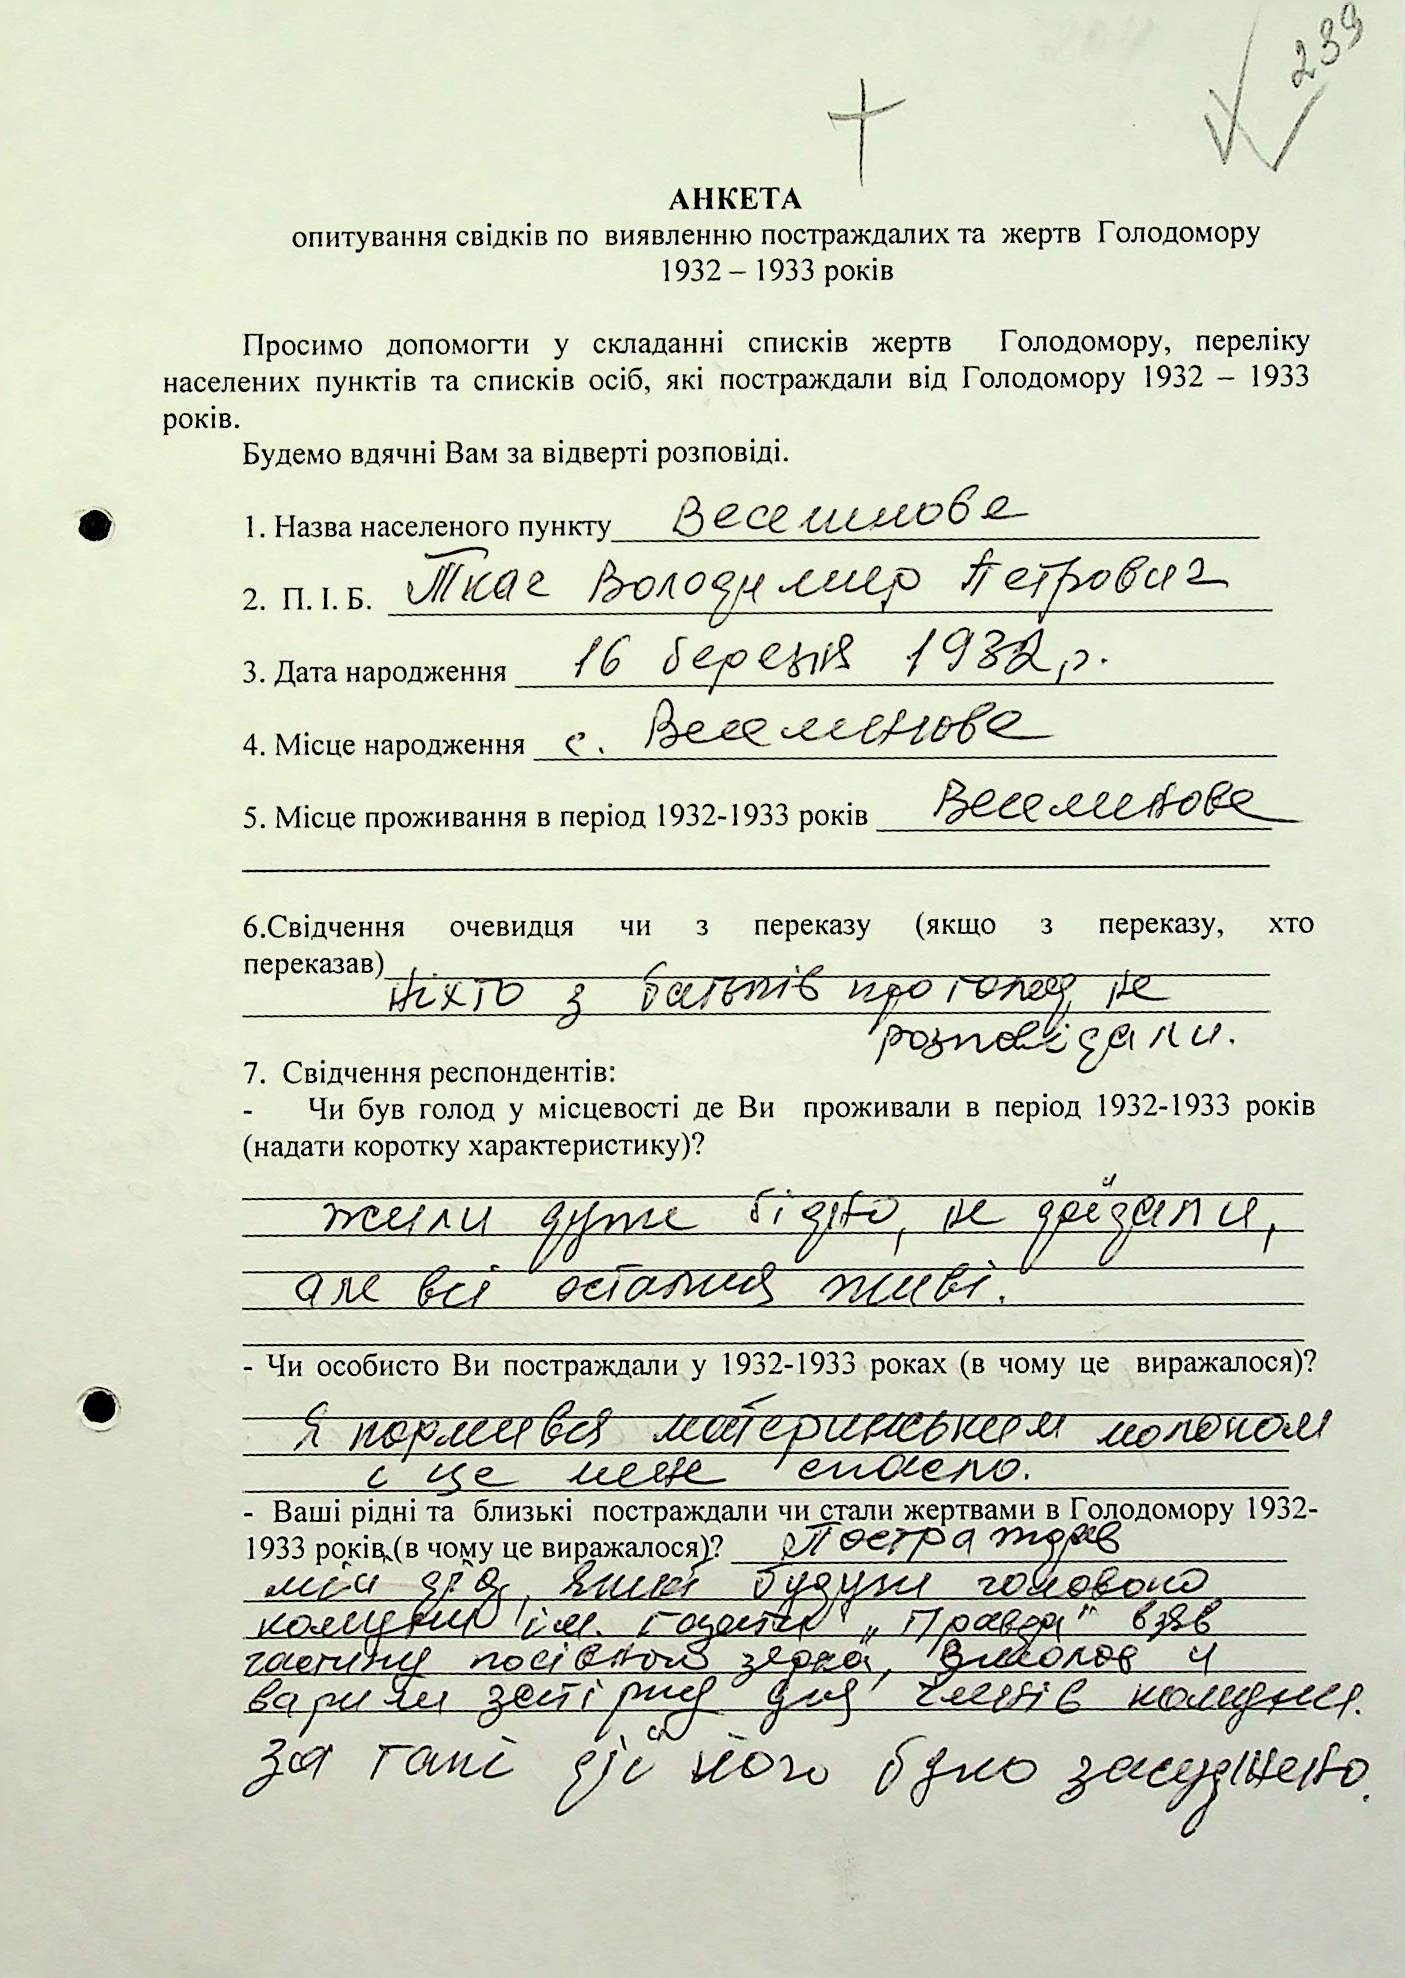 239
АНКЕТА
опитування свідків по виявленню постраждалих та жертв Голодомору
1932 – 1933 років
Просимо допомогти у складанні списків жертв Голодомору, переліку
населених пунктів та списків осіб, які постраждали від Голодомору 1932 – 1933
років.
Будемо вдячні Вам за відверті розповіді.
1. Назва населеного пункту Веселинове
2. П. І. Б. Ткач Володимир Петрович
3. Дата народження 16 березня 1932 р.
4. Місце народження с. Веселинове
5. Місце проживання в період 1932-1933 років Веселинове
6.Свідчення очевидця чи з переказу (якщо з переказу, хто
переказав)
Ніхто з батьків про голод не
розповідали.
7. Свідчення респондентів:
- Чи був голод у місцевості де Ви проживали в період 1932-1933 років
(надати коротку характеристику)?
жили дуже бідно, не доїдали,
але всі остались живі.
- Чи особисто Ви постраждали у 1932-1933 роках (в чому це виражалося)?
Я кормився материнським молоком
і це мене спасло.
- Ваші рідні та близькі постраждали чи стали жертвами в Голодомору 1932-
1933 років (в чому це виражалося)? Постраждав
мій дід, який будучи головою
комуни ім. газети „Правда" взяв
частину посівного зерна, змолов й
варили затірку для членів комуни.
За такі дії його було засуджено.